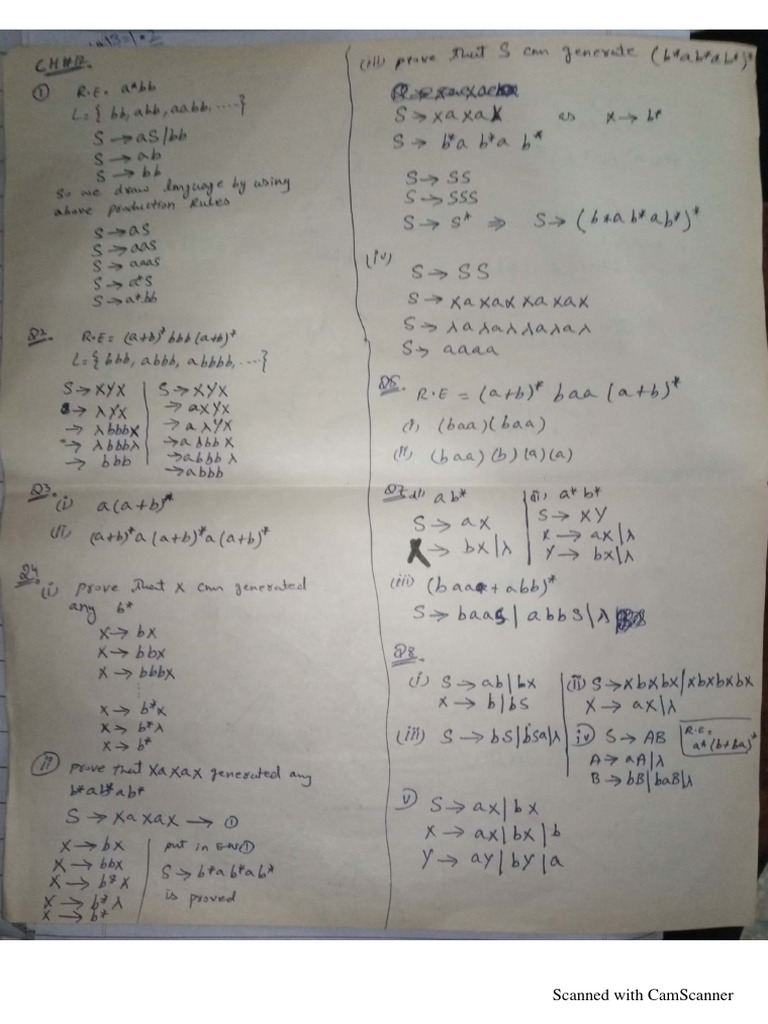 CH#12
① R.E = a*bb
L = { bb, abb, aabb, ....}
S → aS/bb
S → ab
S → bb
So we draw language by using
above production Rules
S → aS
S → aaS
S → aaaS
S → a*S
S → a*bb
Q2. R.E = (a+b)* bbb (a+b)*
L = { bbb, abbb, abbbb, ....}
S → XYX
→ λYX
→ λbbbX
→ λbbbλ
→ bbb
S → XYX
→ aXYX
→ aλYX
→ aλbbX
→ abbbλ
→ abbb
Q3. (i) a(a+b)*
(ii) (a+b)*a(a+b)*a(a+b)*
Q4 (i) prove that X can generated
any b*
X → bX
X → bbX
X → bbbX
X → b*X
X → b*λ
X → b*
(ii) prove that XaXaX generated any
b*ab*ab*
S → XaXaX → ①
X → bX
X → bbX
X → b*X
X → b*λ
X → b*
put in E.No①
S → b*ab*ab*
is proved
(iii) prove that S can generate (b*ab*ab*)*
S → XaXaX as X → b*
S → b*a b*a b*
S → SS
S → SSS
S → S* ⇒ S → (b*ab*ab*)*
(iv)
S → SS
S → XaXaX XaXaX
S → λaλaλλaλaλ
S → aaaa
Q5. R.E = (a+b)* baa (a+b)*
(i) (baa)(baa)
(ii) (baa)(b)(a)(a)
Q7. (i) ab*
S → aX
X → bX|λ
(ii) a*b*
S → XY
X → aX|λ
Y → bX|λ
(iii) (baa+abb)*
S → baaS|abbS|λ
Q8.
(i) S → ab|bX
X → b|bS
(ii) S → XbXbX|XbXbXbX
X → aX|λ
(iii) S → bS|bSa|λ
iv) S → AB
A → aA|λ
B → bB|baB|λ
R.E =
a*(b+ba)*
v) S → aX|bX
X → aX|bX|b
Y → aY|bY|a
Scanned with CamScanner